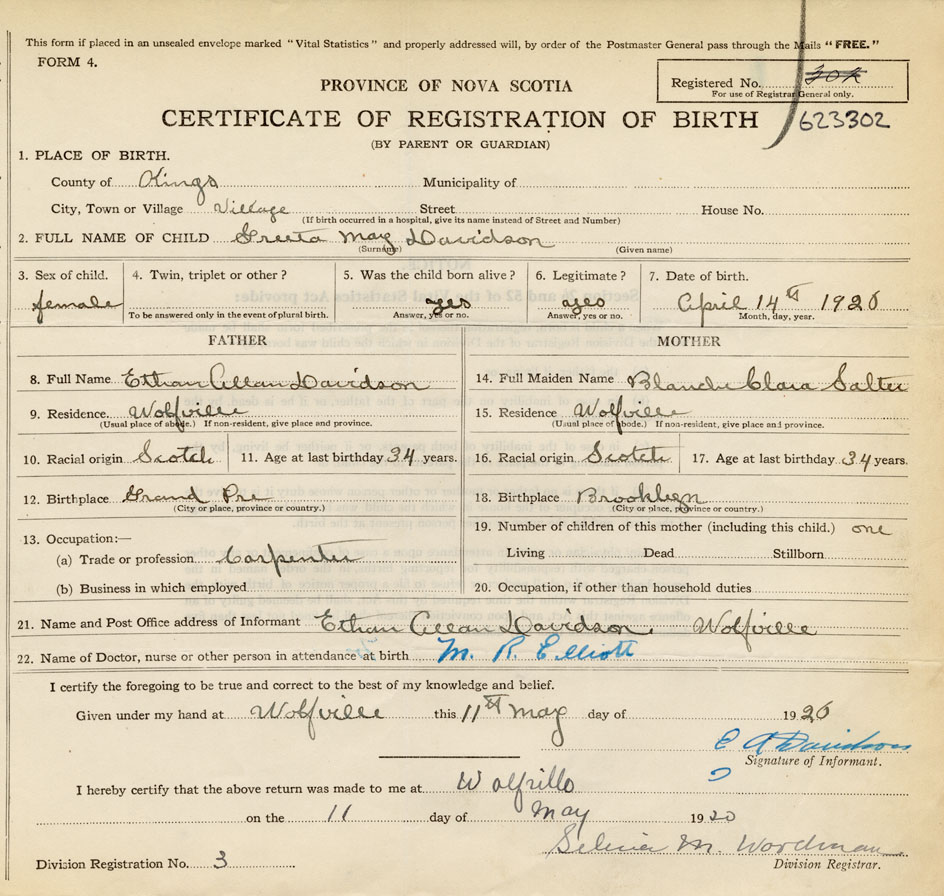 This form if placed in an unsealed envelope marked "Vital Statistics" and properly addressed will, by order of the Postmaster General pass through the Mails "FREE."
FORM 4.
PROVINCE OF NOVA SCOTIA
Registered No. 302
For use of Registrar General only.
CERTIFICATE OF REGISTRATION OF BIRTH
623302
(BY PARENT OR GUARDIAN)
1. PLACE OF BIRTH.
County of Kings Municipality of
City, Town or Village Village Street House No.
(If birth occurred in a hospital, give its name instead of Street and Number)
2. FULL NAME OF CHILD Greeta May Davidson
(Surname) (Given name)
3. Sex of child. 4. Twin, triplet or other? 5. Was the child born alive? 6. Legitimate? 7. Date of birth.
female yes yes April 14th 1920
To be answered only in the event of plural birth. Answer, yes or no. Answer, yes or no. Month, day, year.
FATHER MOTHER
8. Full Name Ethan Allan Davidson 14. Full Maiden Name Blanche Clara Salter
9. Residence. Wolfville 15. Residence Wolfville
(Usual place of abode.) If non-resident, give place and province. (Usual place of abode.) If non-resident, give place and province.
10. Racial origin Scotch 11. Age at last birthday 34 years. 16. Racial origin Scotch 17. Age at last birthday 34 years.
12. Birthplace Grand Pre 18. Birthplace Brooklyn
(City or place, province or country.) (City or place, province or country.)
19. Number of children of this mother (including this child.) one
13. Occupation:—
(a) Trade or profession Carpenter Living Dead Stillborn
(b) Business in which employed 20. Occupation, if other than household duties
21. Name and Post Office address of Informant Ethan Allan Davidson, Wolfville
22. Name of Doctor, nurse or other person in attendance at birth M. R. Elliott
I certify the foregoing to be true and correct to the best of my knowledge and belief.
Given under my hand at Wolfville this 11th May day of 1920
E A Davidson
Signature of Informant.
I hereby certify that the above return was made to me at Wolfville
on the 11 day of May 1920
Selina M. Wordman
Division Registration No. 3 Division Registrar.